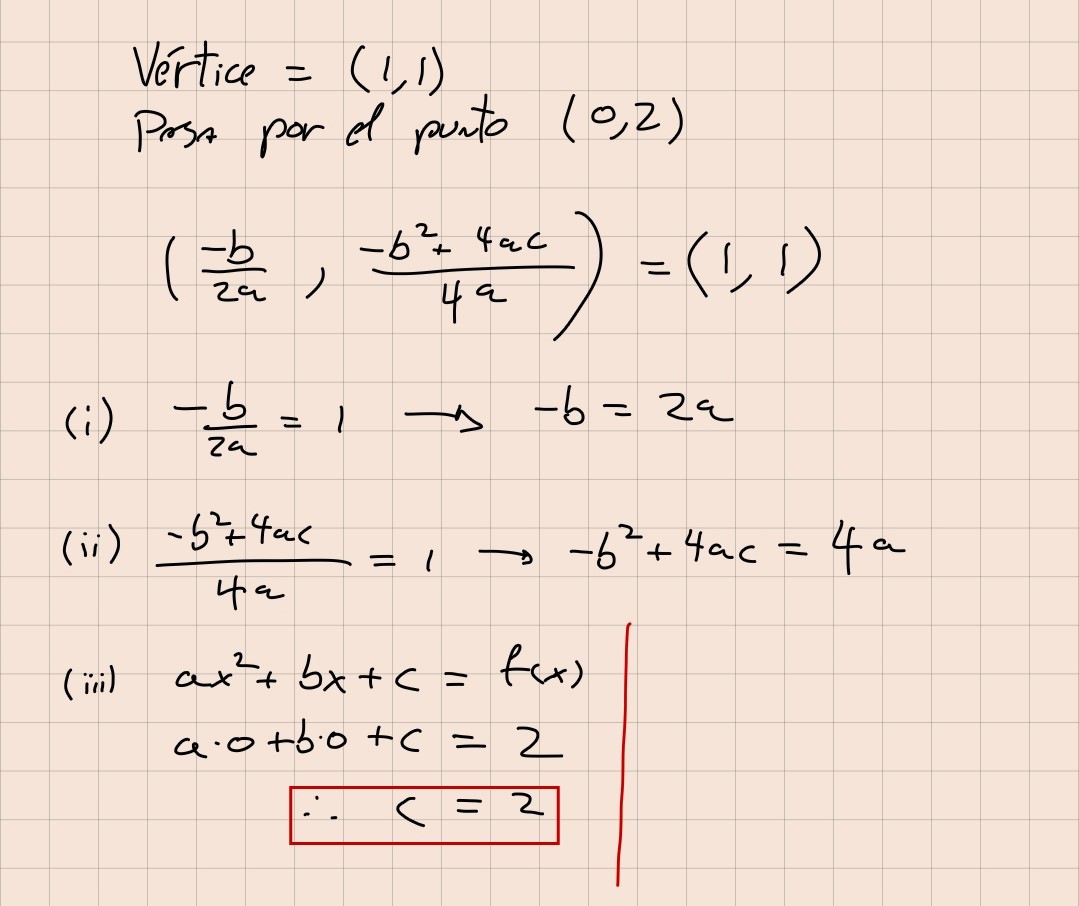 Vértice = (1,1)
Pasa por el punto (0,2)
( -b/2a , (-b²+ 4ac)/4a ) = (1, 1)
(i) -b/2a = 1 → -b = 2a
(ii) (-b²+4ac)/4a = 1 → -b²+ 4ac = 4a
(iii) ax²+ bx + c = f(x)
a·0 +b·0 +c = 2
∴ c = 2